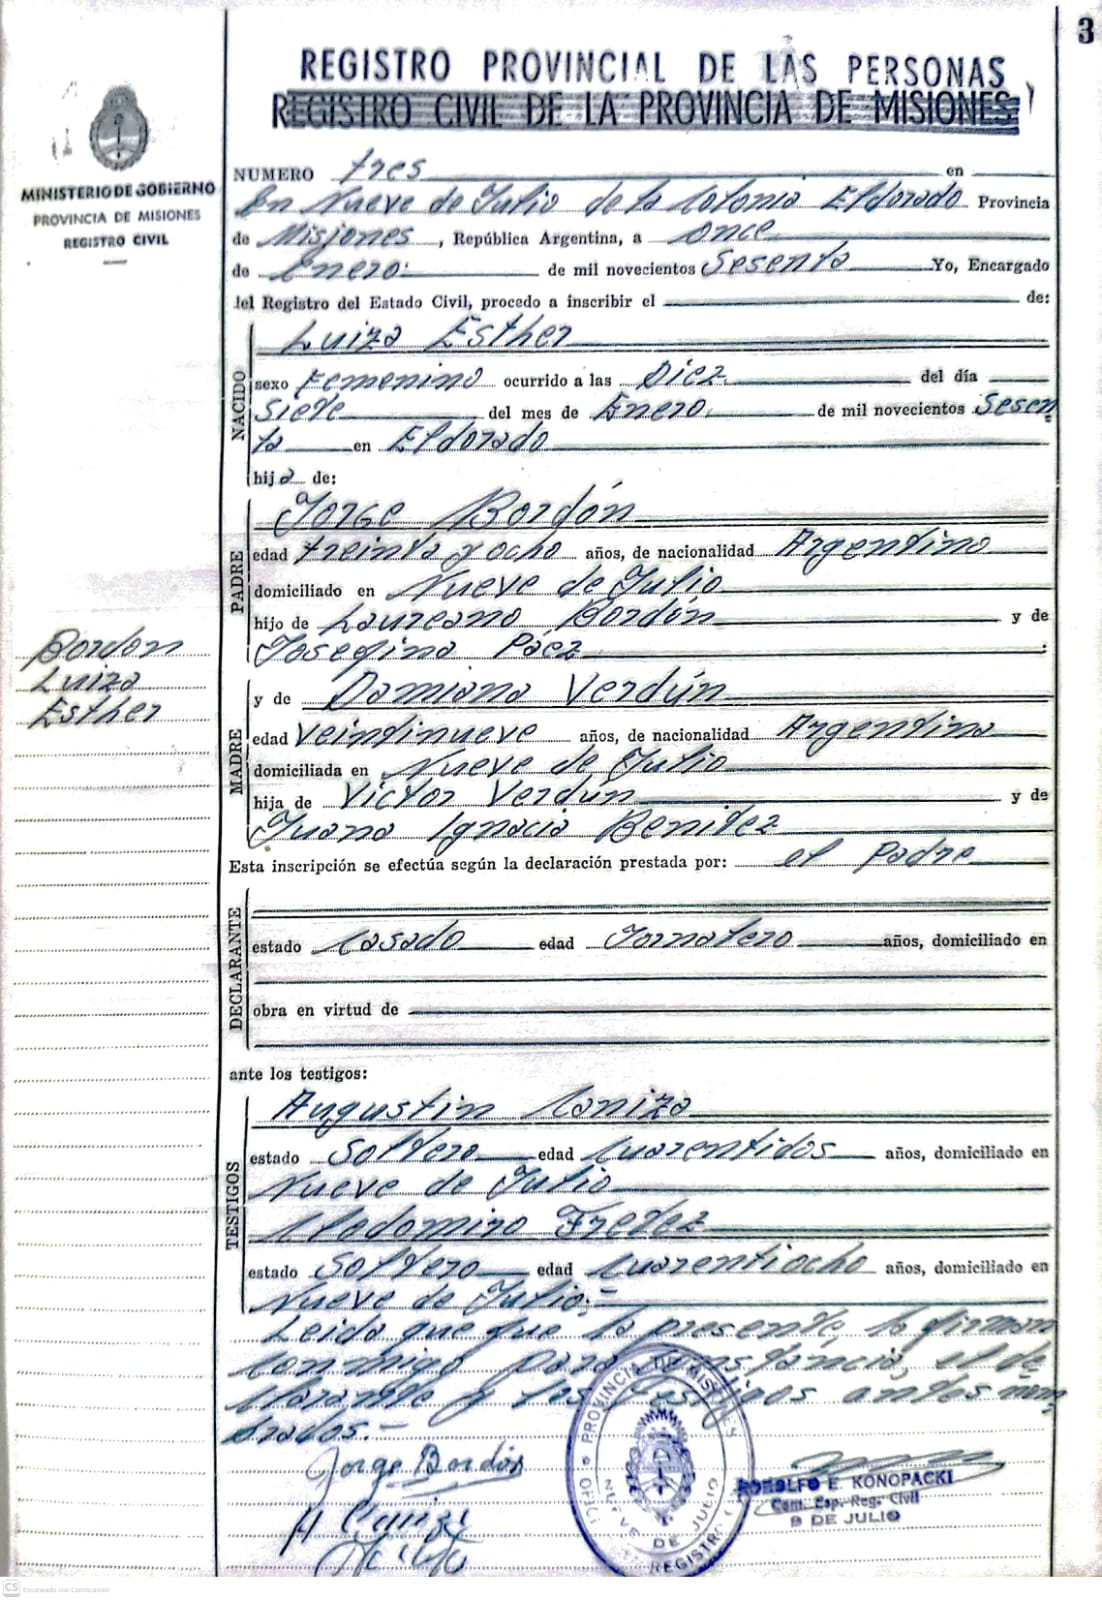 3
REGISTRO PROVINCIAL DE LAS PERSONAS
REGISTRO CIVIL DE LA PROVINCIA DE MISIONES
MINISTERIO DE GOBIERNO
PROVINCIA DE MISIONES
REGISTRO CIVIL
NUMERO tres en
En Nueve de Julio de la Colonia Eldorado Provincia
de Misiones, República Argentina, a once
de Enero. de mil novecientos Sesenta Yo, Encargado
del Registro del Estado Civil, procedo a inscribir el de:
NACIDO
Luiza Esther
sexo Femenino ocurrido a las Diez del día
Siete del mes de Enero. de mil novecientos Sesen
ta en Eldorado
hija de:
PADRE
Jorge Bordón
edad treinta y ocho años, de nacionalidad Argentino
domiciliado en Nueve de Julio
hijo de Laureano Bordón y de
Josefina Páez
Bordon
Luiza
Esther
MADRE
y de Damiana Verdún
edad Veintinueve años, de nacionalidad Argentina
domiciliada en Nueve de Julio
hija de Victor Verdún y de
Juana Ignacia Benitez
Esta inscripción se efectúa según la declaración prestada por: el Padre
DECLARANTE
estado Casado edad Jornalero años, domiciliado en
obra en virtud de
ante los testigos:
TESTIGOS
Augustin Caniza
estado Soltero edad Cuarentidos años, domiciliado en
Nueve de Julio
Clodomiro Fretez
estado Soltero edad Cuarentiocho años, domiciliado en
Nueve de Julio.-
Leida que fue la presente, la firman
conmigo para constancia, el de
clarante y los testigos antes nom
brados.-
Jorge Bordón
A Caniza
PROVINCIA DE MISIONES
NUEVE DE JULIO
REGISTRO
RODOLFO E. KONOPACKI
Enc. Esp. Reg. Civil
9 DE JULIO
CS Escaneado con CamScanner